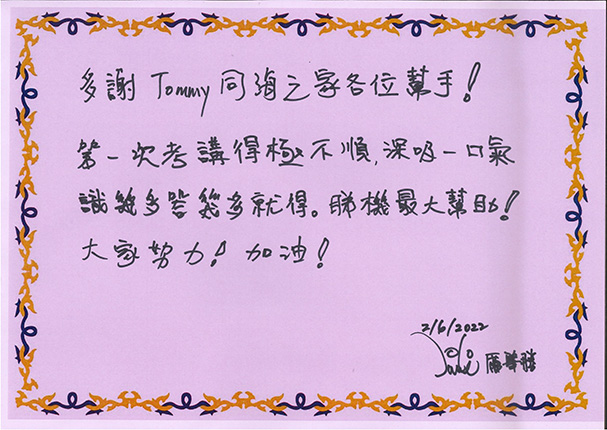 多謝 Tommy 同 之家各位幫手!
第一次考講得極不順,深吸一口氣
識幾多答幾多就得。睇機最大幫助!
大家努力!加油!
2/6/2022